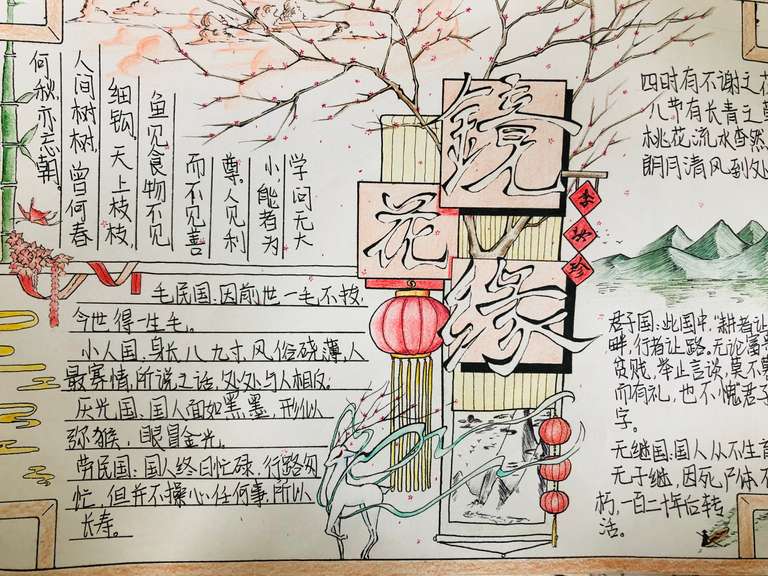 学问无大
小能者为
尊。人见利
而不见善
鱼见食物不见
细钩。天上枝枝,
人间树树。曾何春
何秋,亦忘朝。
鏡
花
缘
李汝珍
四时有不谢之花
八节有长青之草
桃花流水杳然
明月清风到处
毛民国:因前世一毛不拔,
今世得一生毛。
小人国:身长八九寸,风俗硗薄,人
最寡情,所说之话,处处与人相反。
国:国人面如黑墨,形似
弥猴,眼冒金光。
劳民国:国人终日忙碌,行路匆
忙,但并不操心任何事,所以
长寿。
君子国:此国中,耕者让
畔,行者让路。无论富
贫贱,举止言谈,莫不
而有礼,也不愧君子
字。
无继国:国人从不生育
无子继,因死尸体不
朽,一百二十年后转
活。